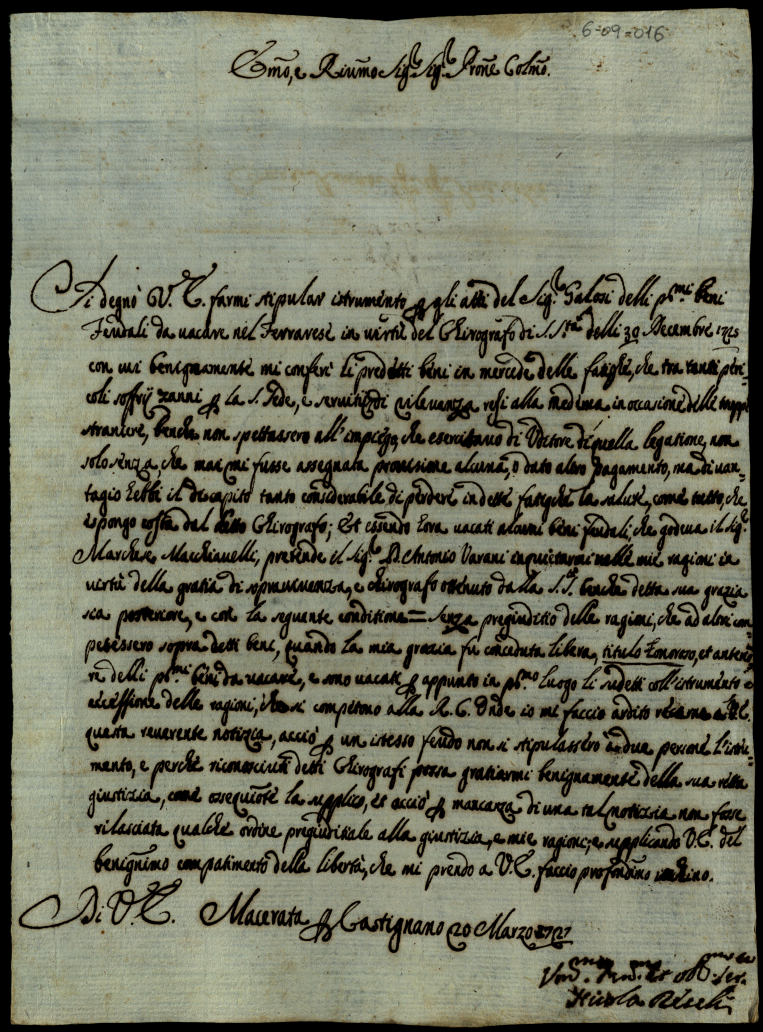 6=09=016
Emo, e Riumo Sigr. Sigr. Prone Colmo.
Si degnò V. E. farmi stipular istrumento p gli atti del Sigr. Galosi delli pmi. beni
Feudali da vacare nel Ferrarese in virtù del Chirografo di S. Stà delli 30 Decembre 1725
con cui benignamente mi conferì li predetti beni in mercede delle fatighe, che tra tanti peri-
coli soffrij anni p la S. Sede, e servitij di rilevanza resi alla medema in occasione delle truppe
straniere, benche non spettassero all'impiego, che esercitavo di Uditore di quella legatione, non
solo senza, che mai mi fusse assegnata provisione alcuna, o dato altro pagamento, ma di van-
tagio hebbi il discapito tanto considerabile di perdere in dette fatighe la salute, come tutto, che
espongo costa dal detto Chirografo; Et essendo hora vacati alcuni beni feudali, che godeva il Sigr.
Marchese Macchiavelli, pretende il Sigr. D. Antonio Varani inquietarmi nelle mie ragioni in
virtù della gratia di sopravivenza, e chirografo ottenuto dalla S. S. benche detta sua grazia
sia posteriore, e con la seguente conditione = senza pregiuditio delle ragioni, che ad altri com-
petessero sopra detti beni, quando la mia grazia fu conceduta libera, titulo honoroso, et anterio-
re delli pmi beni da vacare, e sono vacati p appunto in pmo luogo li sudetti coll'istrumento e
cessione delle ragioni, che si competono alla R. C. Onde io mi faccio ardito recarne a V. E.
questa reverente notizia, acciò p un istesso feudo non si stipulassero a due persone l'istru-
mento, e perche riconosciuti detti Chirografi possa gratiarmi benignamente della sua retta
giustizia, come ossequiote la supplico, et acciò p mancanza di una tal notizia non fosse
rilasciata qualche ordine pregiuditiale alla giustizia, e mie ragioni; e supplicando V. E. del
benignimo compatimento della libertà, che mi prendo a V. E. faccio profondmo inchino.
Di V. E. Macerata p Castignano 20 Marzo 1727
Nicola